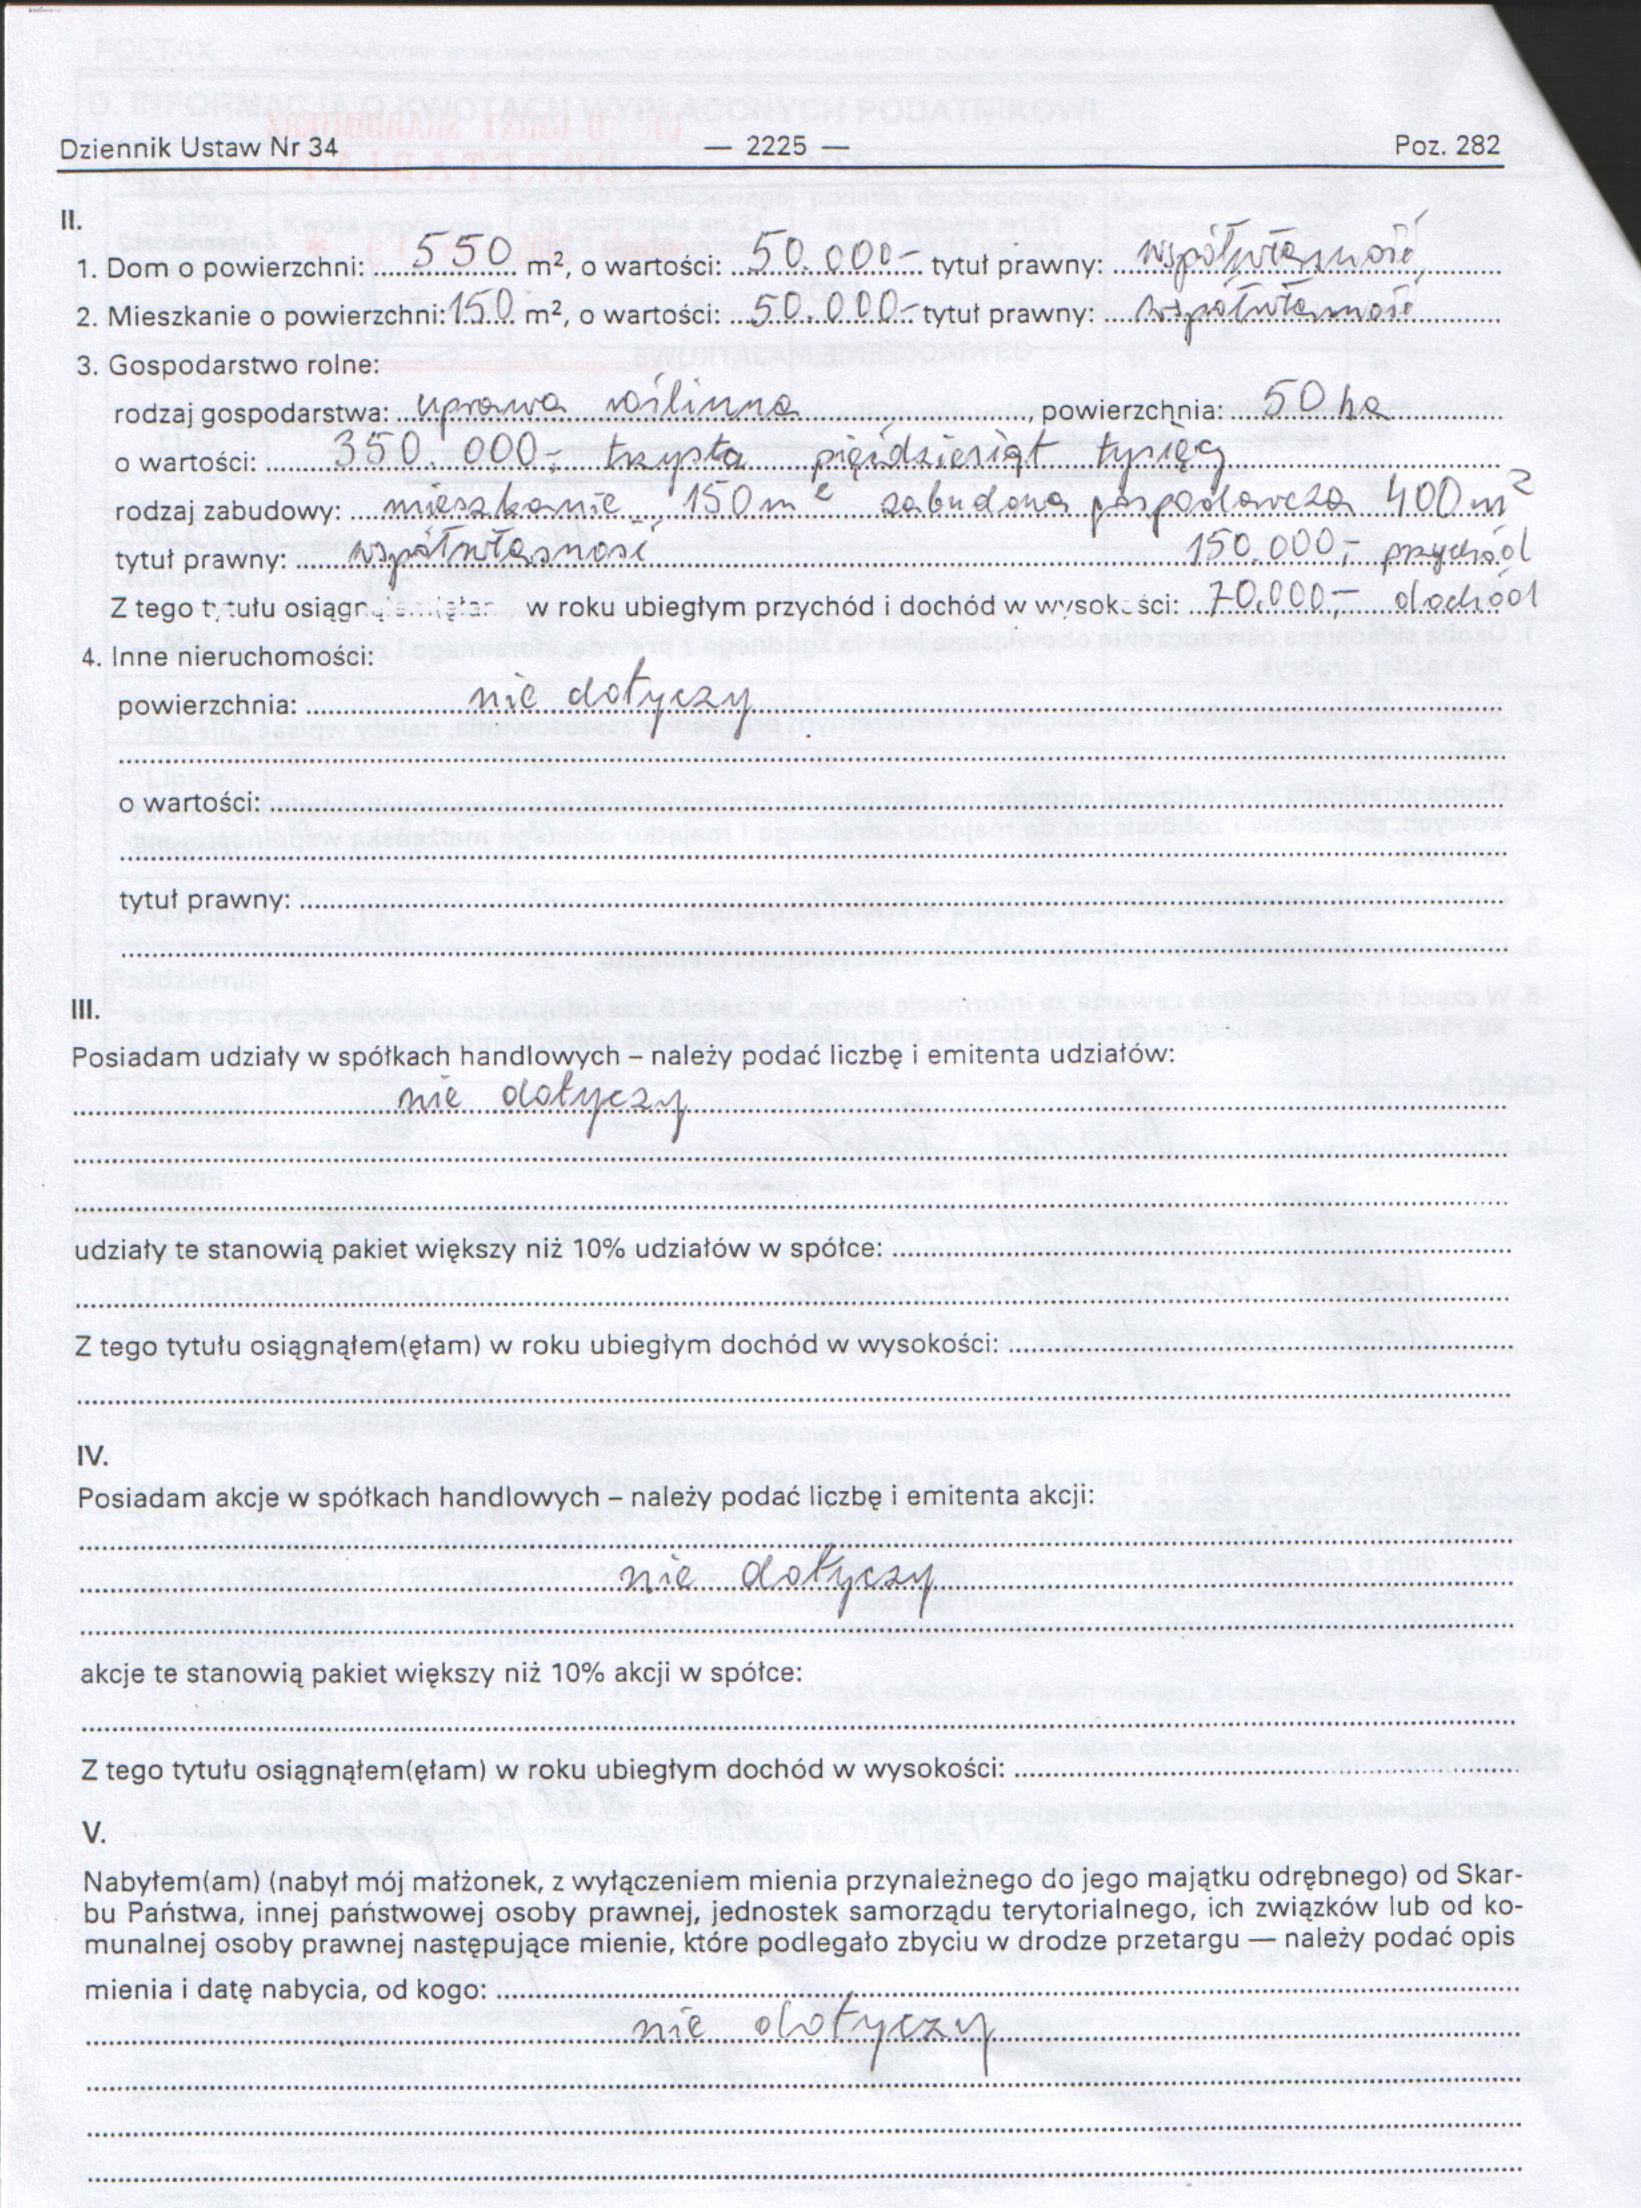 Dziennik Ustaw Nr 34 — 2225 — Poz. 282
II.
1. Dom o powierzchni: 550 m², o wartości: 50.000,- tytuł prawny: współwłasność
2. Mieszkanie o powierzchni: 150 m², o wartości: 50.000,- tytuł prawny: współwłasność
3. Gospodarstwo rolne:
rodzaj gospodarstwa: uprawa roślinna, powierzchnia: 50 ha
o wartości: 350.000,- trzysta pięćdziesiąt tysięcy
rodzaj zabudowy: mieszkanie 150 m² zabudowa gospodarcza 400 m²
tytuł prawny: współwłasność 150.000,- przychód
Z tego tytułu osiągnąłem(ęłam) w roku ubiegłym przychód i dochód w wysokości: 70.000,- dochód
4. Inne nieruchomości:
powierzchnia: nie dotyczy
o wartości:
tytuł prawny:
III.
Posiadam udziały w spółkach handlowych – należy podać liczbę i emitenta udziałów:
nie dotyczy
udziały te stanowią pakiet większy niż 10% udziałów w spółce:
Z tego tytułu osiągnąłem(ęłam) w roku ubiegłym dochód w wysokości:
IV.
Posiadam akcje w spółkach handlowych – należy podać liczbę i emitenta akcji:
nie dotyczy
akcje te stanowią pakiet większy niż 10% akcji w spółce:
Z tego tytułu osiągnąłem(ęłam) w roku ubiegłym dochód w wysokości:
V.
Nabyłem(am) (nabył mój małżonek, z wyłączeniem mienia przynależnego do jego majątku odrębnego) od Skar-
bu Państwa, innej państwowej osoby prawnej, jednostek samorządu terytorialnego, ich związków lub od ko-
munalnej osoby prawnej następujące mienie, które podlegało zbyciu w drodze przetargu — należy podać opis
mienia i datę nabycia, od kogo:
nie dotyczy